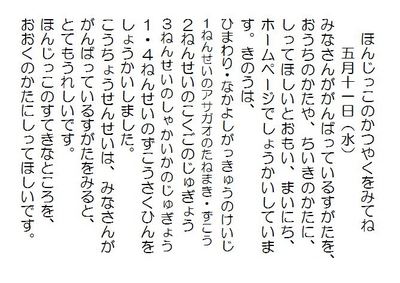 ほんじっこのかつやくをみてね
五月十一日（水）
みなさんががんばっているすがたを、
おうちのかたや、ちいきのかたに、
しってほしいとおもい、まいにち、
ホームページでしょうかいしていま
す。きのうは、
ひまわり・なかよしがっきゅうのけいじ
１ねんせいのアサガオのたねまき・ずこう
２ねんせいのこくごのじゅぎょう
３ねんせいのしゃかいかのじゅぎょう
１・４ねんせいのずこうさくひんを
しょうかいしました。
こうちょうせんせいは、みなさんが
がんばっているすがたをみると、
とてもうれしいです。
ほんじっこのすてきなところを、
おおくのかたにしってほしいです。